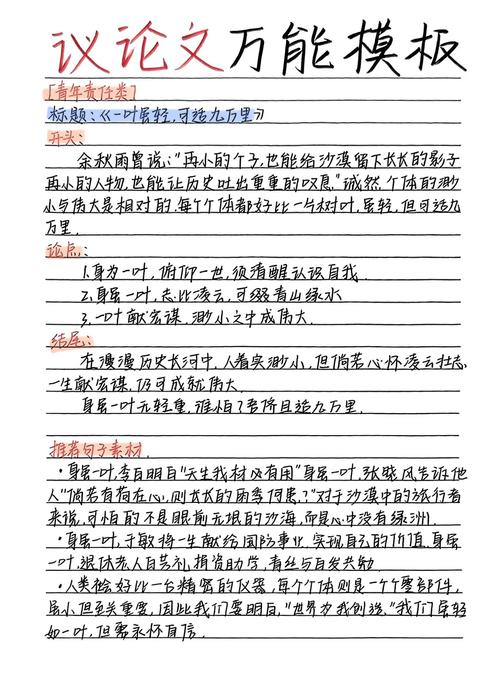 议论文万能模板
[青年责任类]
标题:《一叶虽轻,可适九万里》
开头:
余秋雨曾说:"再小的个子,也能给沙漠留下长长的影子
再小的人物,也能让历史吐出重重的叹息."诚然,个体的渺
小与伟大是相对的.每个个体都好比一片树叶,虽轻,但可适九
万里.
论点:
1.身为一叶,俯仰一世,须清醒认识自我.
2.身虽一叶,志比凌云,可缀青山绿水
3.一叶献宏谋,渺小之中成伟大.
结尾:
在漫漫历史长河中,人着实渺小,但倘若心怀凌云壮志,
一生献宏谋,仍可成就伟大.
身虽一叶无轻重,谁怕?考侪且适九万里.
推荐句子素材.
·身虽一叶,李白明白"天生我材必有用"身虽一叶,张晓风告诉他
人"倘若有荷在心,则长长的雨季何患?"对于沙漠中的旅行者
来说,可怕的不是眼前无垠的沙海,而是心中没有绿洲.
·身虽一叶,于敏将一生献给国防事业,实现自己的价值.身虽
一叶,退休老人白芳礼捐资助学,青丝与白发共勉.
·人类恰好比一台精密的仪器,每个个体则是一个个零部件,
虽小但至关重要,因此我们要明白,"世界为我创造."我们虽轻
如一叶,但需永怀自信.